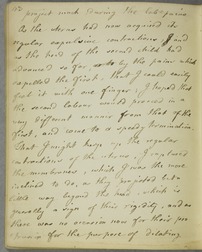 project made during the
As the uterus had now acquired its
regular expulsive contractions, and
as the head of the second child had
advanced so far as by the pains which
expelled the first, that I could easily
feel it with one finger; I hoped that
the second labour would proceed in a
very different manner from that of the
first, and come to a speedy termination.
That I might keep up the regular
contractions of the uterus, I ruptured
the membranes, which I was the more
inclined to do, as they protruded but a
little way beyond the os, which is
generally a sign of their rigidity, and as
there was no occasion now for their
for the purpose of dilating